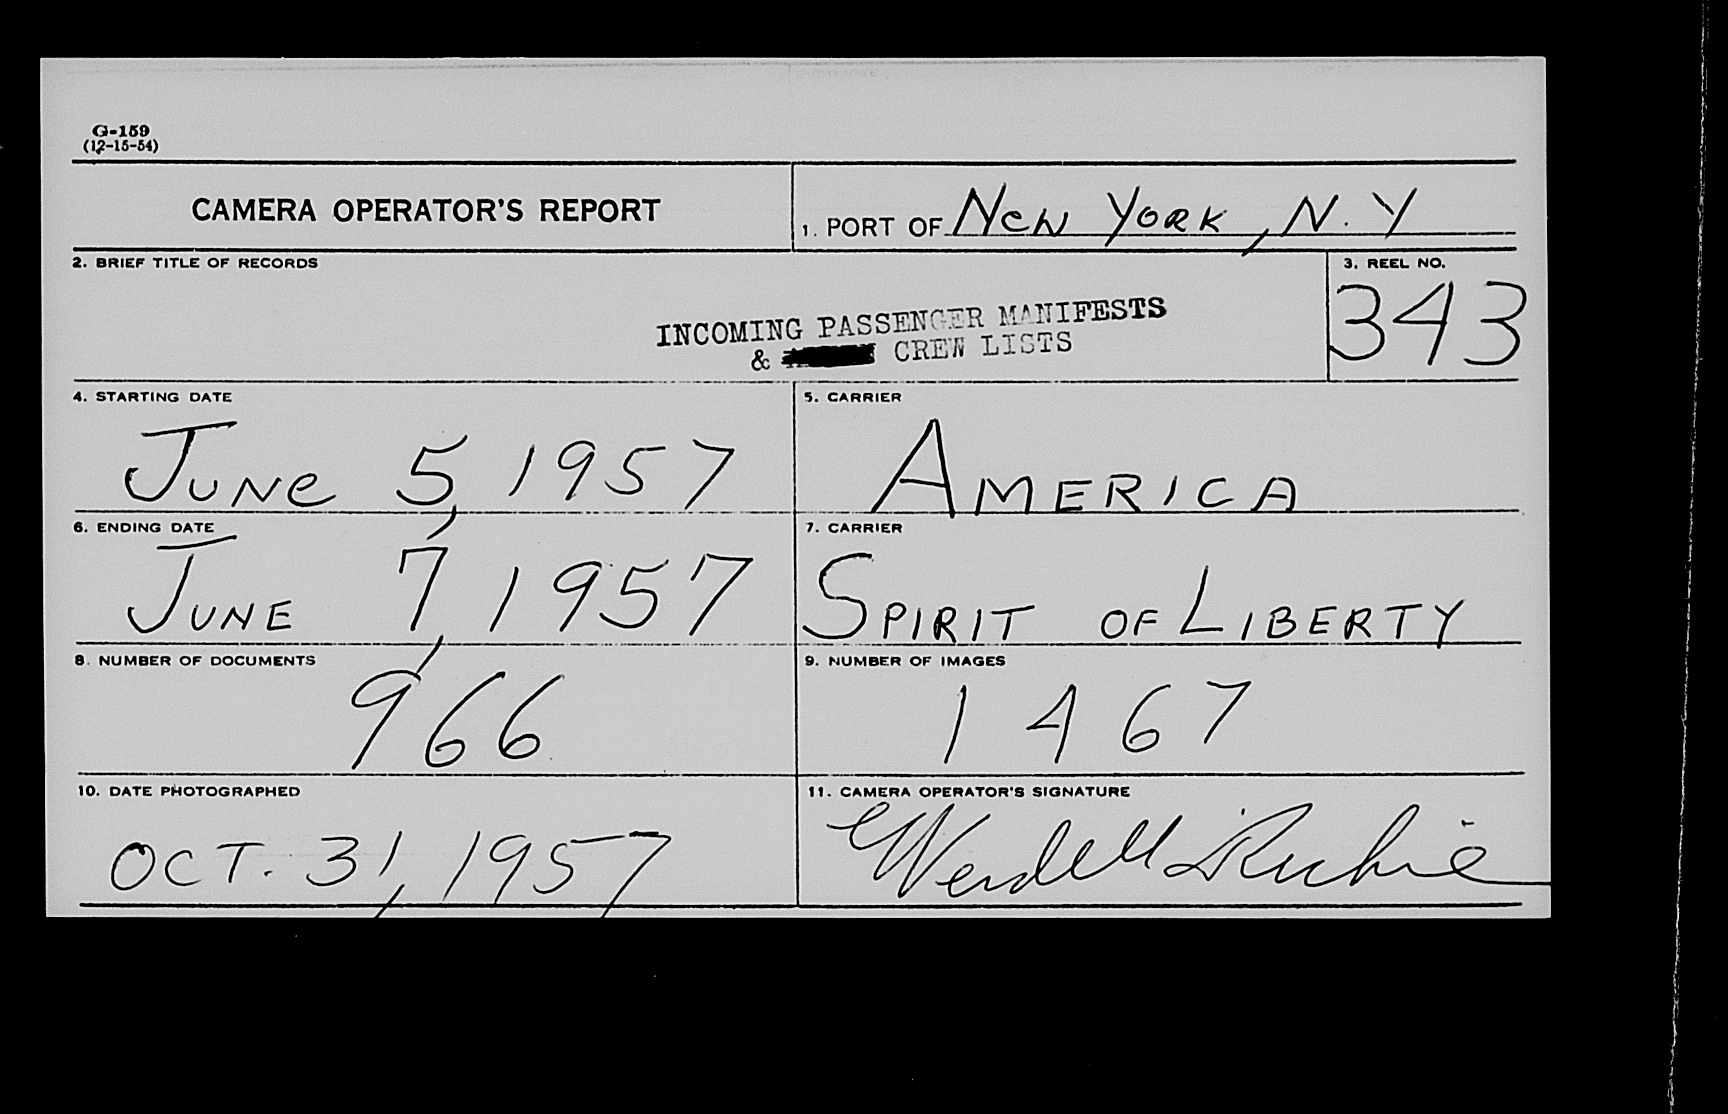 G-159
(12-15-54)
CAMERA OPERATOR'S REPORT
1. PORT OF NEW YORK, N.Y
2. BRIEF TITLE OF RECORDS
INCOMING PASSENGER MANIFESTS
& CREW LISTS
3. REEL NO.
343
4. STARTING DATE
JUNE 5, 1957
5. CARRIER
AMERICA
6. ENDING DATE
JUNE 7, 1957
7. CARRIER
SPIRIT OF LIBERTY
8. NUMBER OF DOCUMENTS
966
9. NUMBER OF IMAGES
1467
10. DATE PHOTOGRAPHED
OCT. 31, 1957
11. CAMERA OPERATOR'S SIGNATURE
Wendell Ruchie